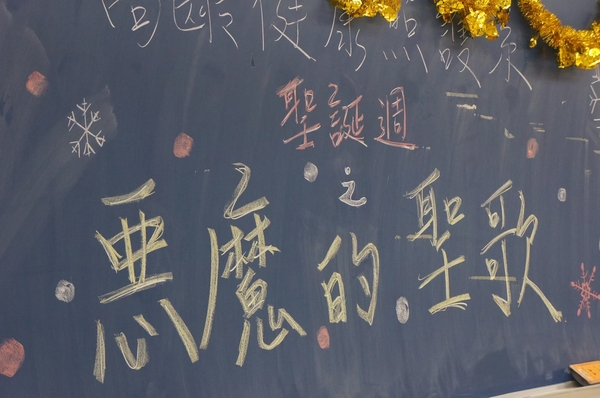 健康
聖誕週
之
惡魔的聖歌